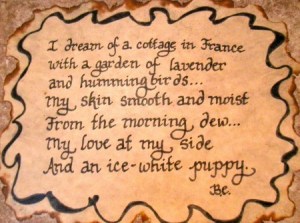 I dream of a cottage in France
with a garden of lavender
and hummingbirds...
My skin smooth and moist
From the morning dew...
My love at my side
And an ice-white puppy
Be.